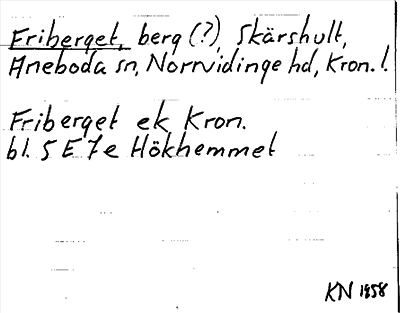 Friberget, berg (?), Skärshult,
Aneboda sn, Norrvidinge hd, Kron. l.
Friberget ek Kron.
bl. 5 E 7e Hökhemmet
KN 1958